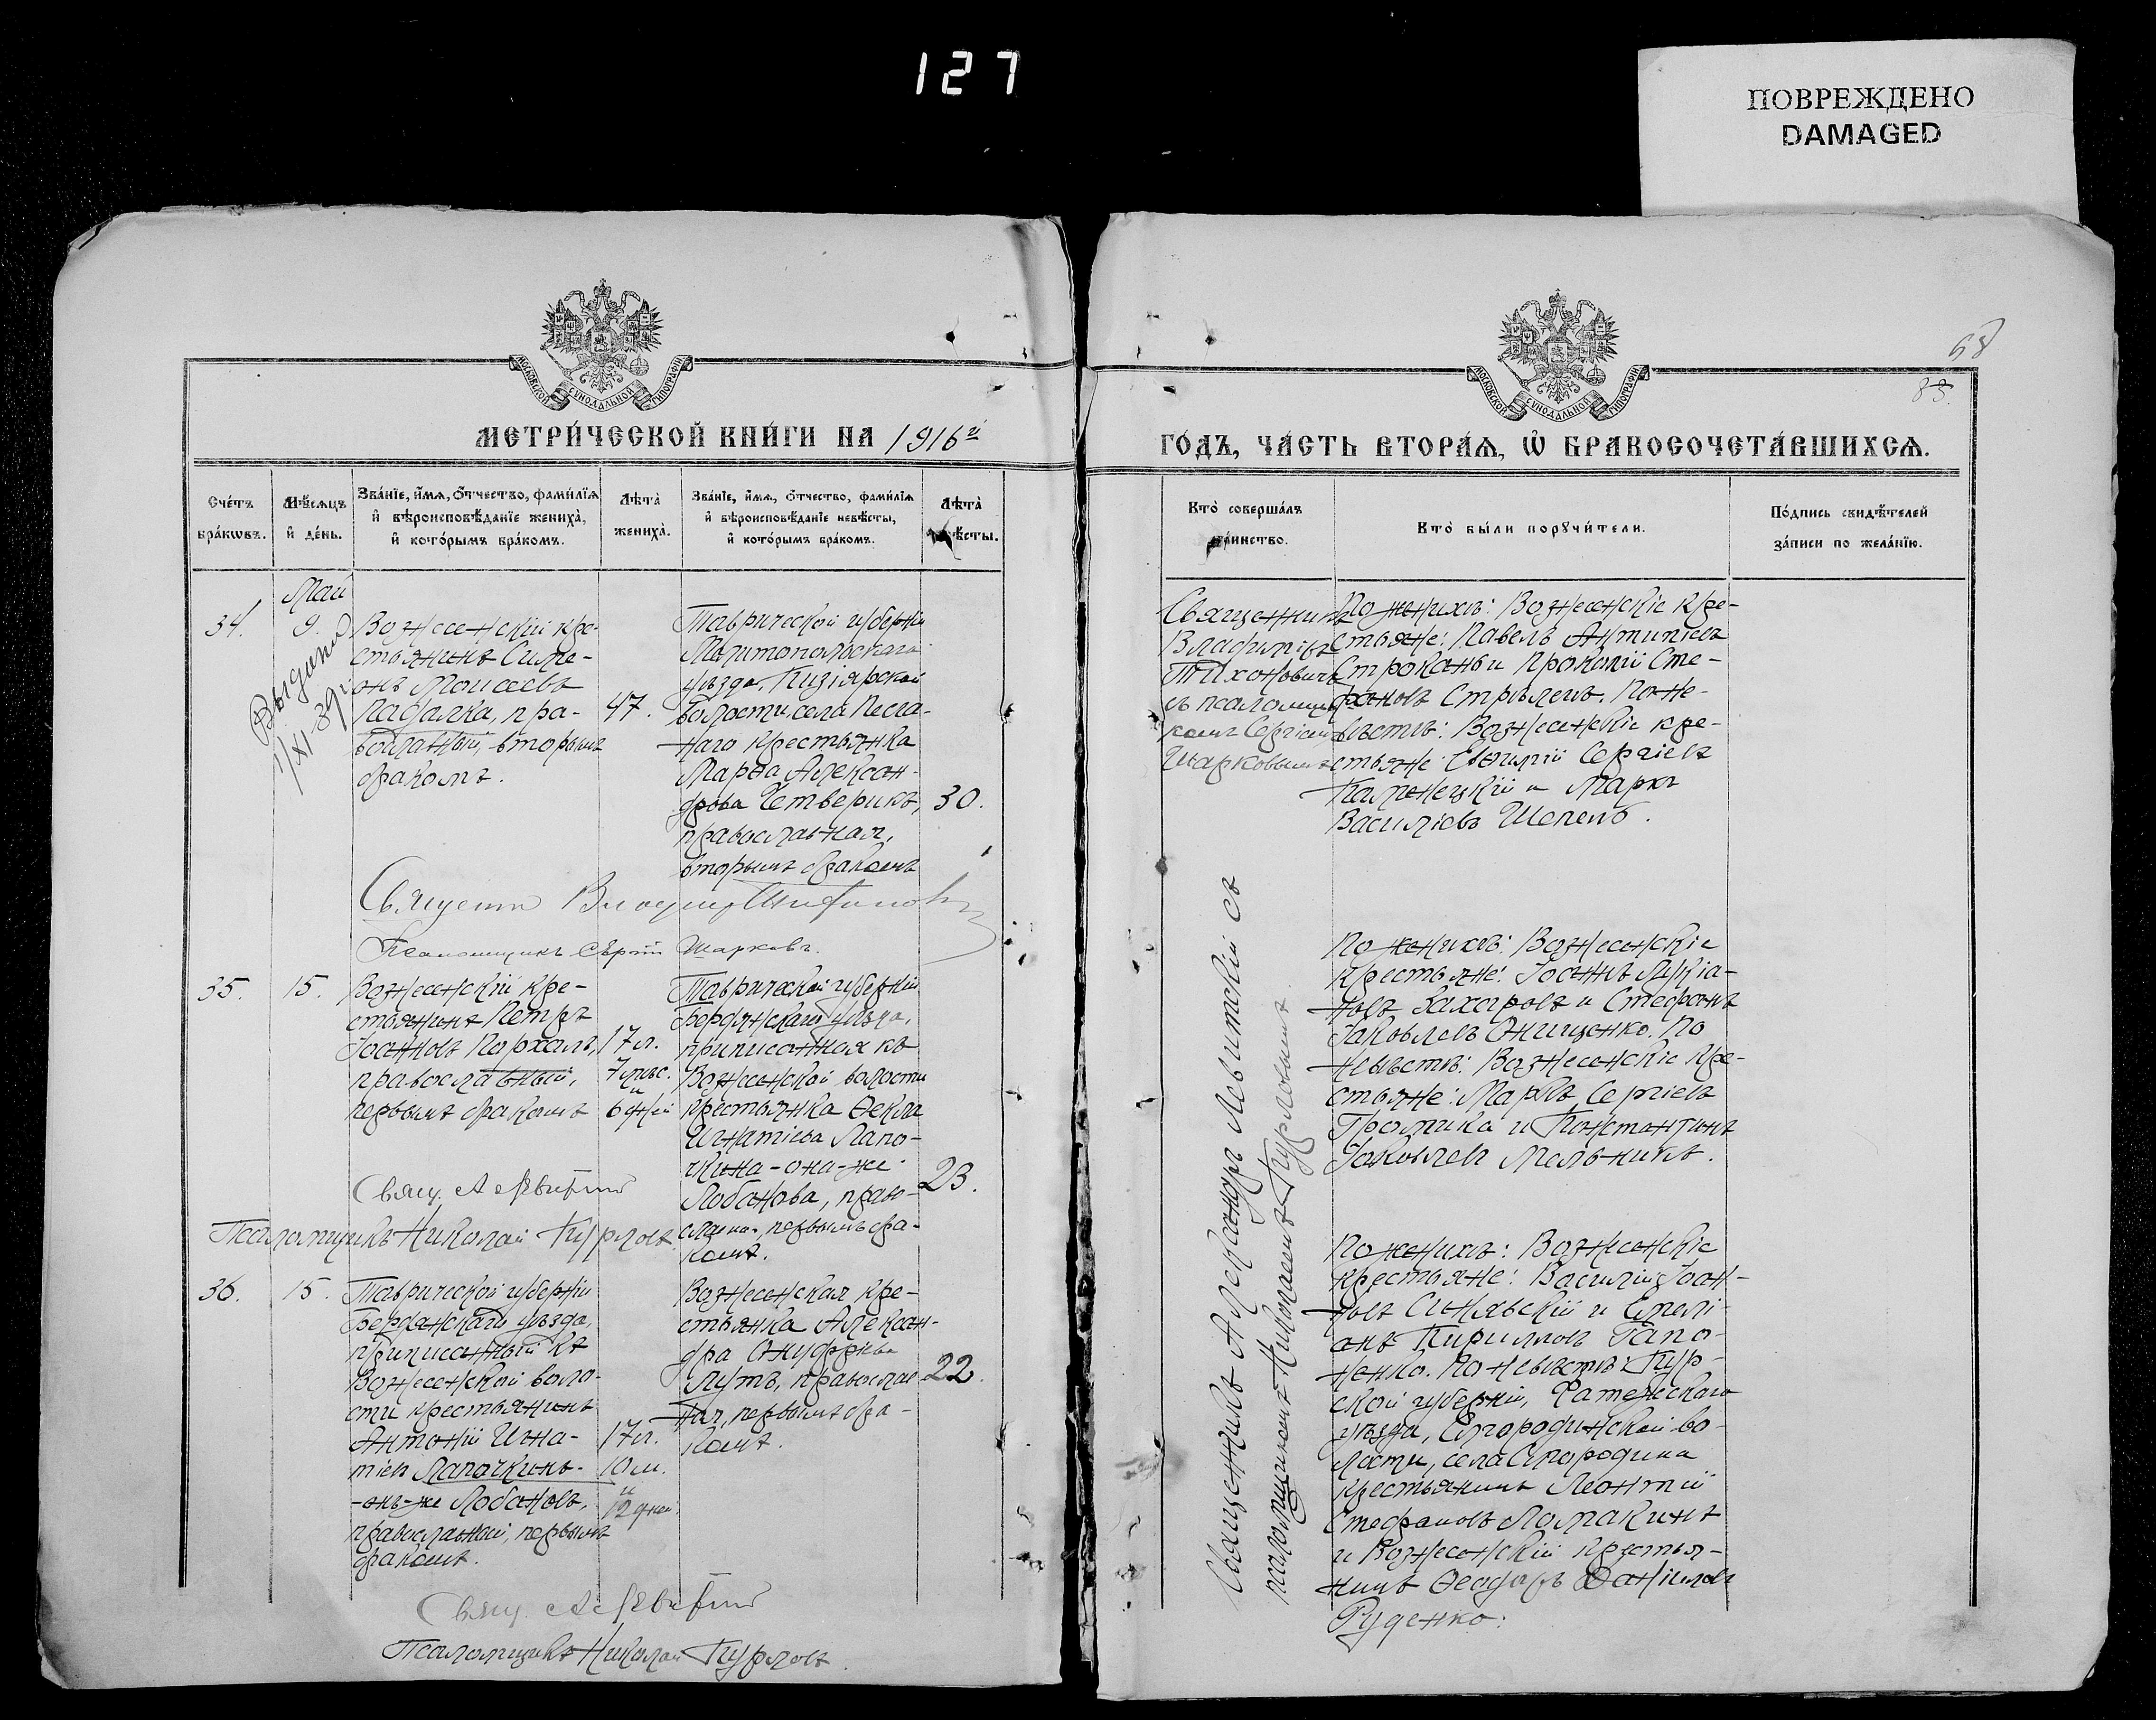 127
ПОВРЕЖДЕНО
DAMAGED
МОСКОВСКОЙ СѴНОДАЛЬНОЙ ТИПОГРАФІИ
МЕТРИ́ЧЕСКОЙ КНИ́ГИ НА 1916й
Сче́тъ бра́кωвъ.
Мѣ́сяцъ и҆ де́нь.
Зва́нїе, и҆́мѧ, ѻ҆́тчество, фами́лїѧ
и҆ вѣроисповѣ́данїе жениха̀,
и҆ кото́рымъ бра́комъ.
Лѣ́та̀ жениха̀.
Зва́нїе, и҆́мѧ, ѻ҆́тчество, фами́лїѧ
и҆ вѣроисповѣ́данїе невѣ́сты,
и҆ кото́рымъ бра́комъ.
Лѣ́та̀
ѣсты.
34.
Май
9.
Выданы
1/XI-39г.
Вознесенскій кре-
стьянинъ Симе-
онъ Моисеевъ
Падалка, пра-
вославный, вторымъ
бракомъ.
47.
Таврической губерніи
Мелитопольскаго
уѣзда, Кизіярской
волости, села Песча-
наго крестьянка
Марѳа Алексан-
дрова Четверикъ,
православная,
вторымъ бракомъ
30.
Священ
Псаломщикъ Сергій Шарковъ.
35.
15.
Вознесенскій кре-
стьянинъ Петръ
Іоанновъ Пархаль,
православный,
первымъ бракомъ
17 л.
7 мѣс.
и
6 дней
Таврической губерніи
Бердянскаго уѣзда,
приписанная къ
Вознесенской волости
крестьянка Ѳекла
Игнатіева Лапо-
чкина-она-же
Лобанова, право-
славная, первымъ бра-
комъ.
23.
Свящ. А Левитскій
Псаломщикъ Николай Курловъ
36.
15.
Таврической губерніи
Бердянскаго уѣзда,
приписанный къ
Вознесенской воло-
сти крестьянинъ
Антоній Игна-
тіевъ Лапочкинъ-
-онъ-же Лобановъ,
православный, первымъ
бракомъ.
17 л.
10 м.
и
12 дней
Вознесенская кре-
стьянка Алексан-
дра Онуфріева
Лутъ, православ-
ная, первымъ бра-
комъ.
22.
Свящ. А Левитскій
Псаломщикъ Николай Курловъ.
68
83.
МОСКОВСКОЙ СѴНОДАЛЬНОЙ ТИПОГРАФІИ
ГО́ДЪ, ЧА́СТЬ ВТОРА́Ѧ, Ѡ҆ БРАКОСОЧЕТА́ВШИХСѦ.
Кто̀ соверша́лъ
таинство.
Кто̀ бы́ли порꙋчи́тели.
По́дпись свидѣ́телей
за́писи по жела́нїю.
Священникъ
Владиміръ
Тихоновичъ
съ псаломщи-
комъ Сергіемъ
Шарковымъ
По женихѣ: Вознесенскіе кре-
стьяне: Павелъ Антипіевъ
Строкань и Прокопій Сте-
фановъ Стрѣлецъ. По не-
вѣстѣ: Вознесенскіе кре-
стьяне: Евѳимій Сергіевъ
Каменецкій и Маркъ
Василіевъ Шепель.
Священникъ Александръ Левитскій съ
псаломщикомъ Николаемъ Курловымъ.
По женихѣ: Вознесенскіе
крестьяне: Іоаннъ Лукіа-
новъ Захаровъ и Стефанъ
Іаковлевъ Онищенко. По
невѣстѣ: Вознесенскіе кре-
стьяне: Маркъ Сергіевъ
Громика и Константинъ
Іаковлевъ Мельникъ.
По женихѣ: Вознесенскіе
крестьяне: Василій Іоан-
новъ Синявскій и Емелі-
анъ Кирилловъ Гапо-
ненко. По невѣстѣ: Кур-
ской губерніи, Фатежскаго
уѣзда, волости, села
крестьянинъ Леонтій
Стефановъ Ломакинъ
и Вознесенскій крестья-
нинъ Ѳеодоръ Даніиловъ
Руденко.